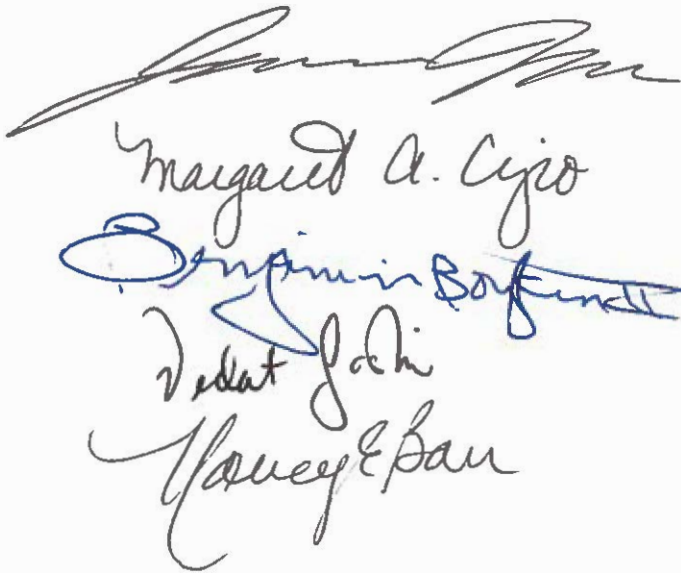 Margaret A. Cuzzo
Benjamin Boykin II
Vedat Gashi
Nancy E Barr